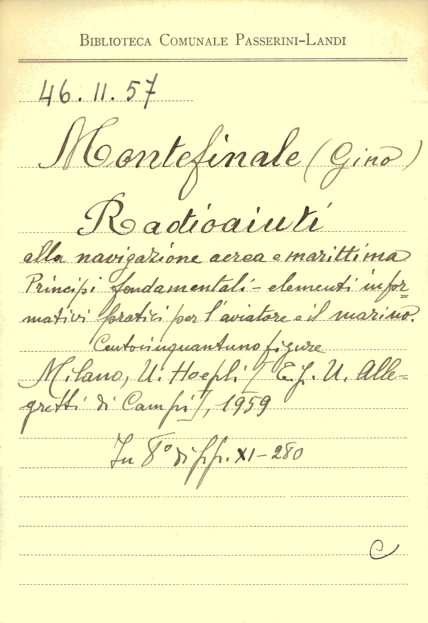 BIBLIOTECA COMUNALE PASSERINI-LANDI
46.11.57
Montefinale (Gino)
Radioaiuti
alla navigazione aerea e marittima
Principi fondamentali - elementi infor=
mativi pratici per l'aviatore e il marino.
Centocinquantuno figure
Milano, U. Hoepli [E.f. U. Alle=
gretti di Campi], 1959
In 8° di pp. XI-280
C